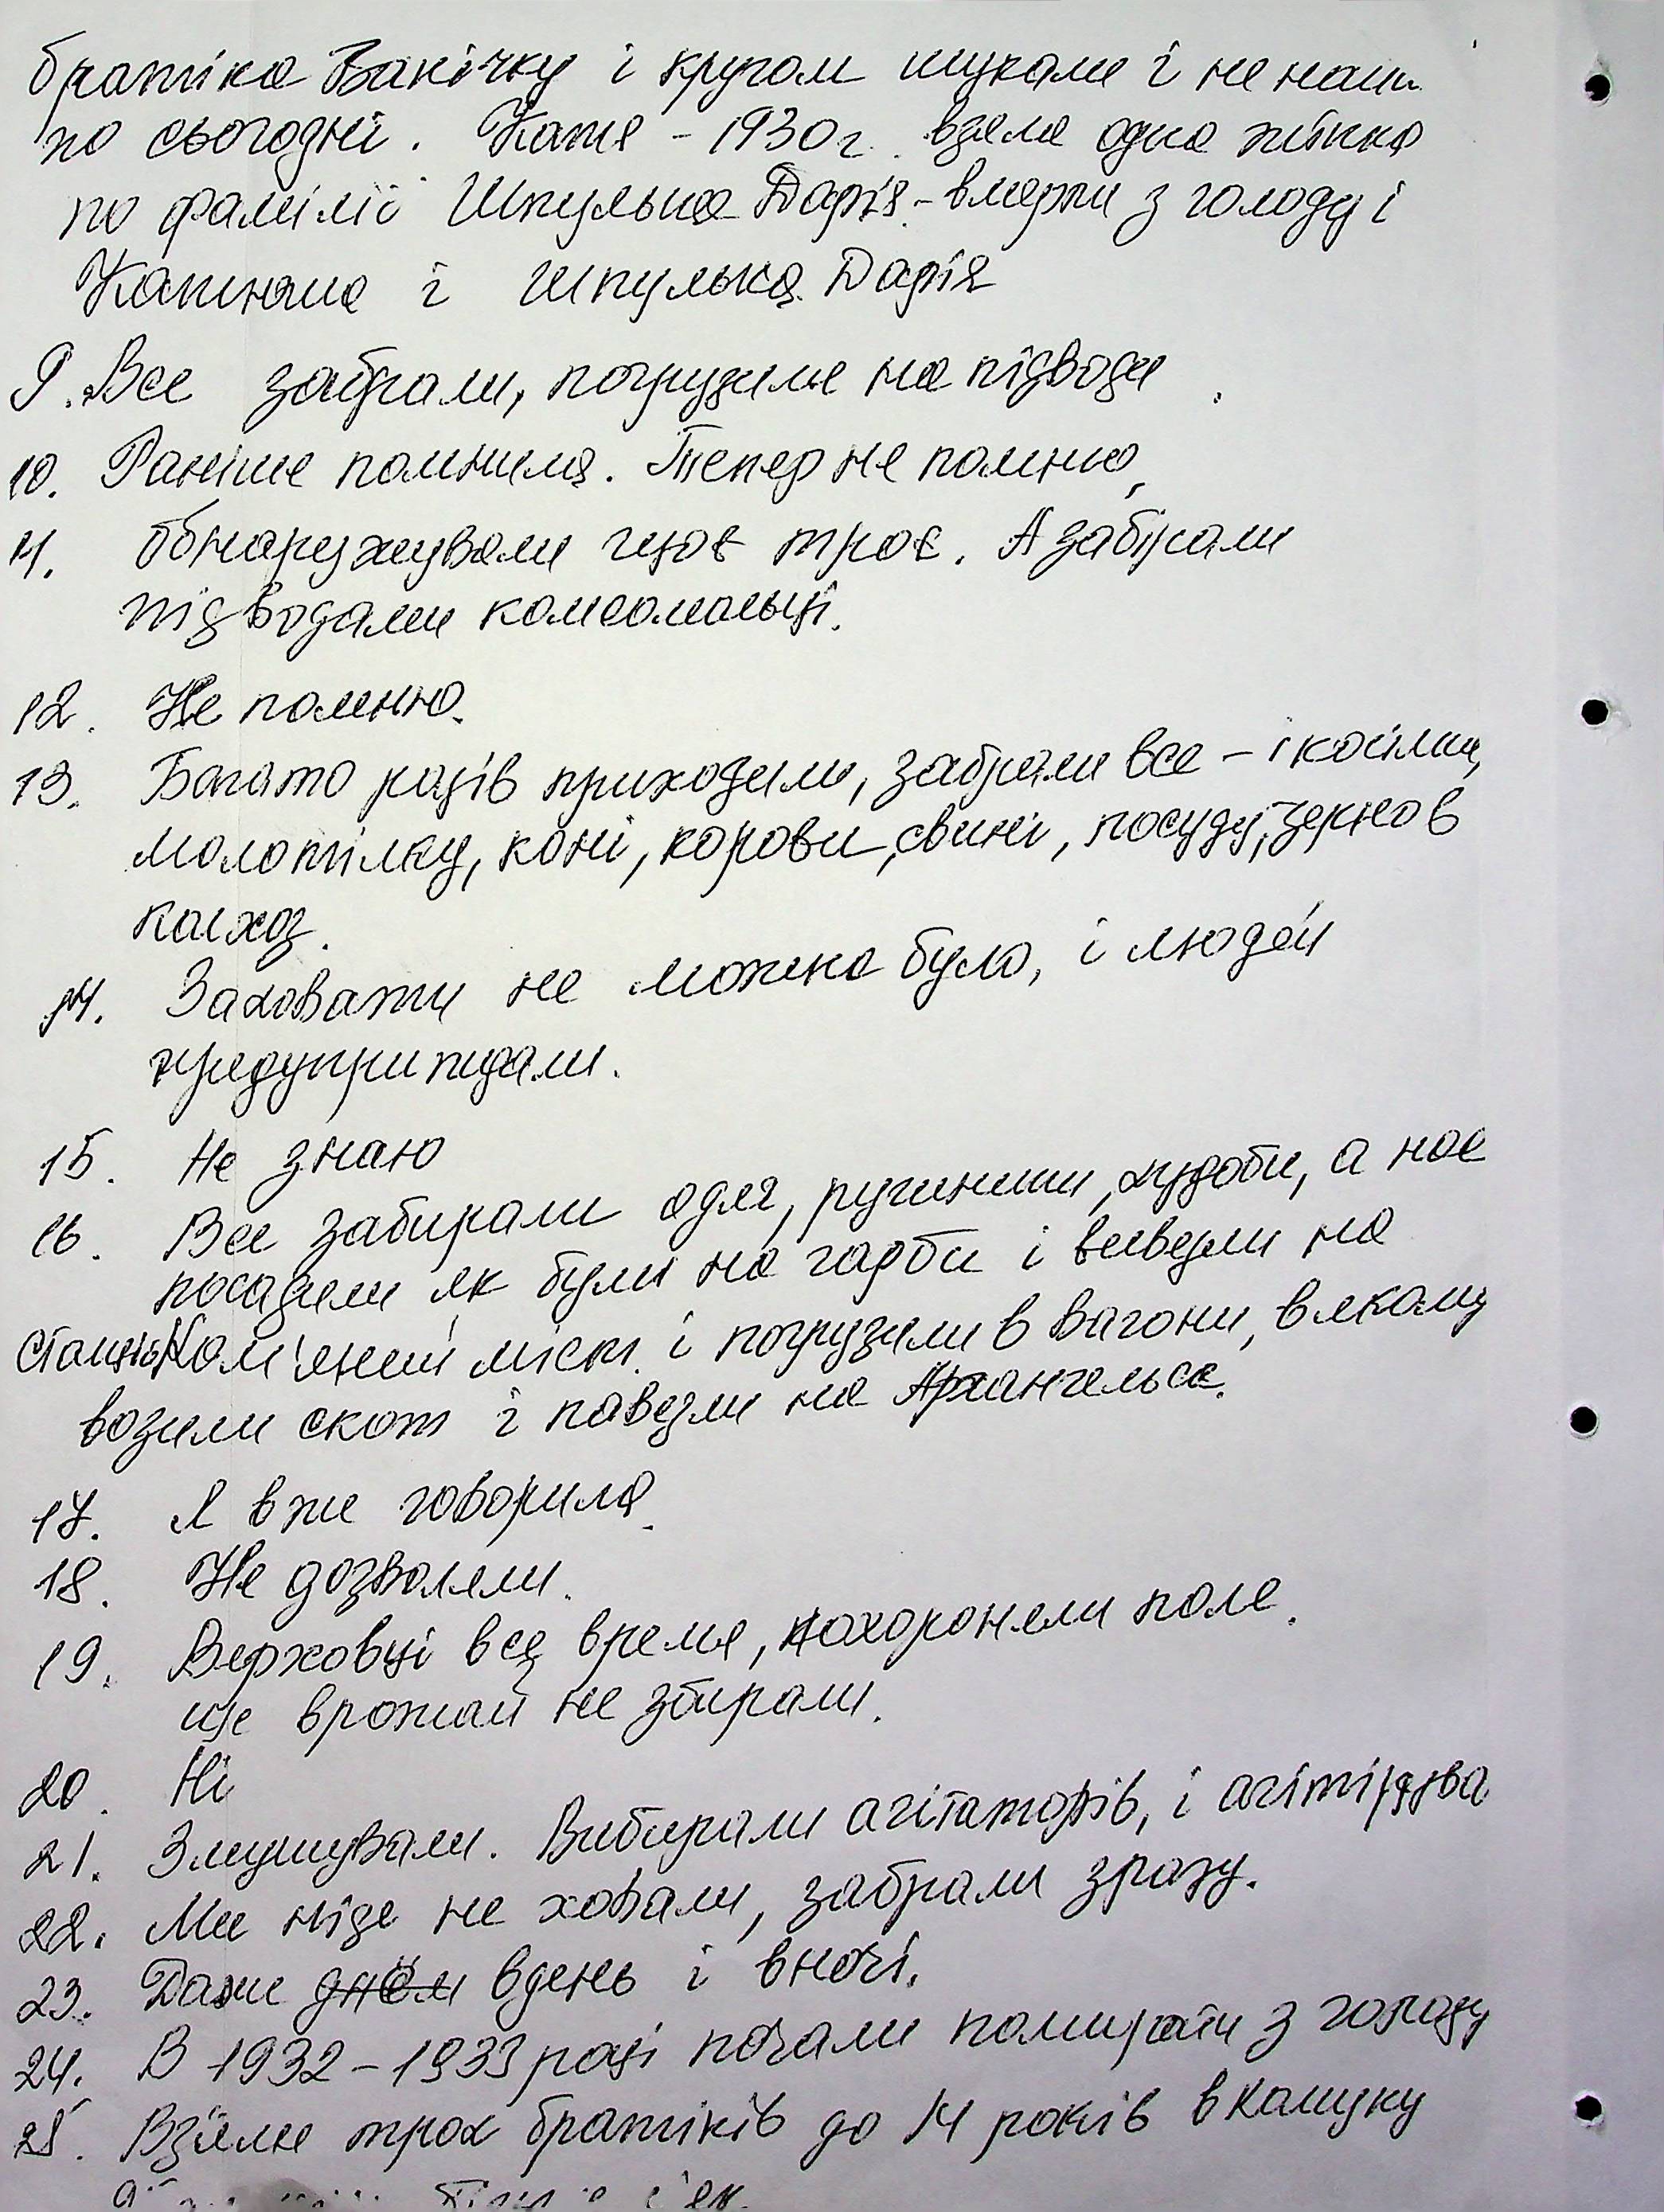 братіка Ванічку і кругом шукали і не наш
по сьогодні. Катя - 1930 г. взяла одна жінка
по фамілії Шпулька Дарія - вмерли з голоду і
Катюша і Шпулька Дарія
9. Все забрали, погрузили на підводи.
10. Раніше помнила. Тепер не помню,
11. Обнаружували двоє троє. А забірали
підводами комсомольці.
12. Не помню.
13. Багато разів приходили, забрали все - і косілки,
молотілку, коні, корови, свині, посуду, зерно в
колхоз.
14. Заховати не можна було, і людей
предуприждали.
15. Не знаю
16. Все забирали одяг, рушники, худоби, а нас
посадили як були на гарби і вивезли на
станцію Кам'яний міст і погрузили в вагони, в якому
возили скот і повезли на Архангельск.
17. Я вже говорила.
18. Не дозволяли.
19. Верховці все время, похороняли поле.
ще врожай не збирали.
20. Ні
21. Змушували. Вибирали агітаторів, і агітірува
22. Ми ніде не ховали, забрали зразу.
23. Даже днём вдень і вночі.
24. В 1932-1933 році почали помирати з голоду
25. Взяли трох братіків до 14 років в Камуну